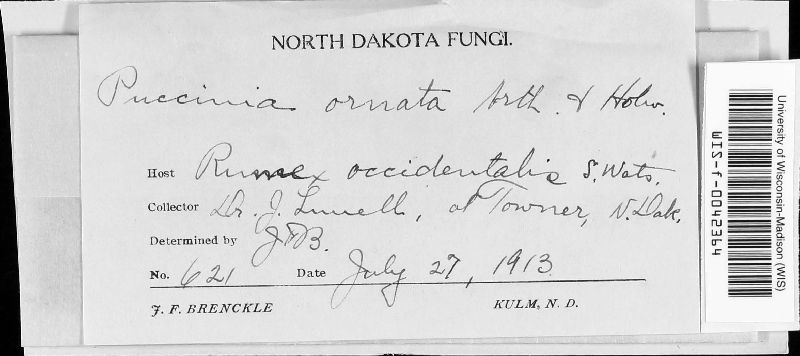 NORTH DAKOTA FUNGI.
Puccinia ornata Arth. & Holw.
Host Rumex occidentalis S. Wats.
Collector Dr. J. Lunell, at Towner, N. Dak.
Determined by JFB.
No. 621 Date July 27, 1913
J. F. BRENCKLE KULM, N. D.
University of Wisconsin-Madison (WIS)
WIS-f-0042364